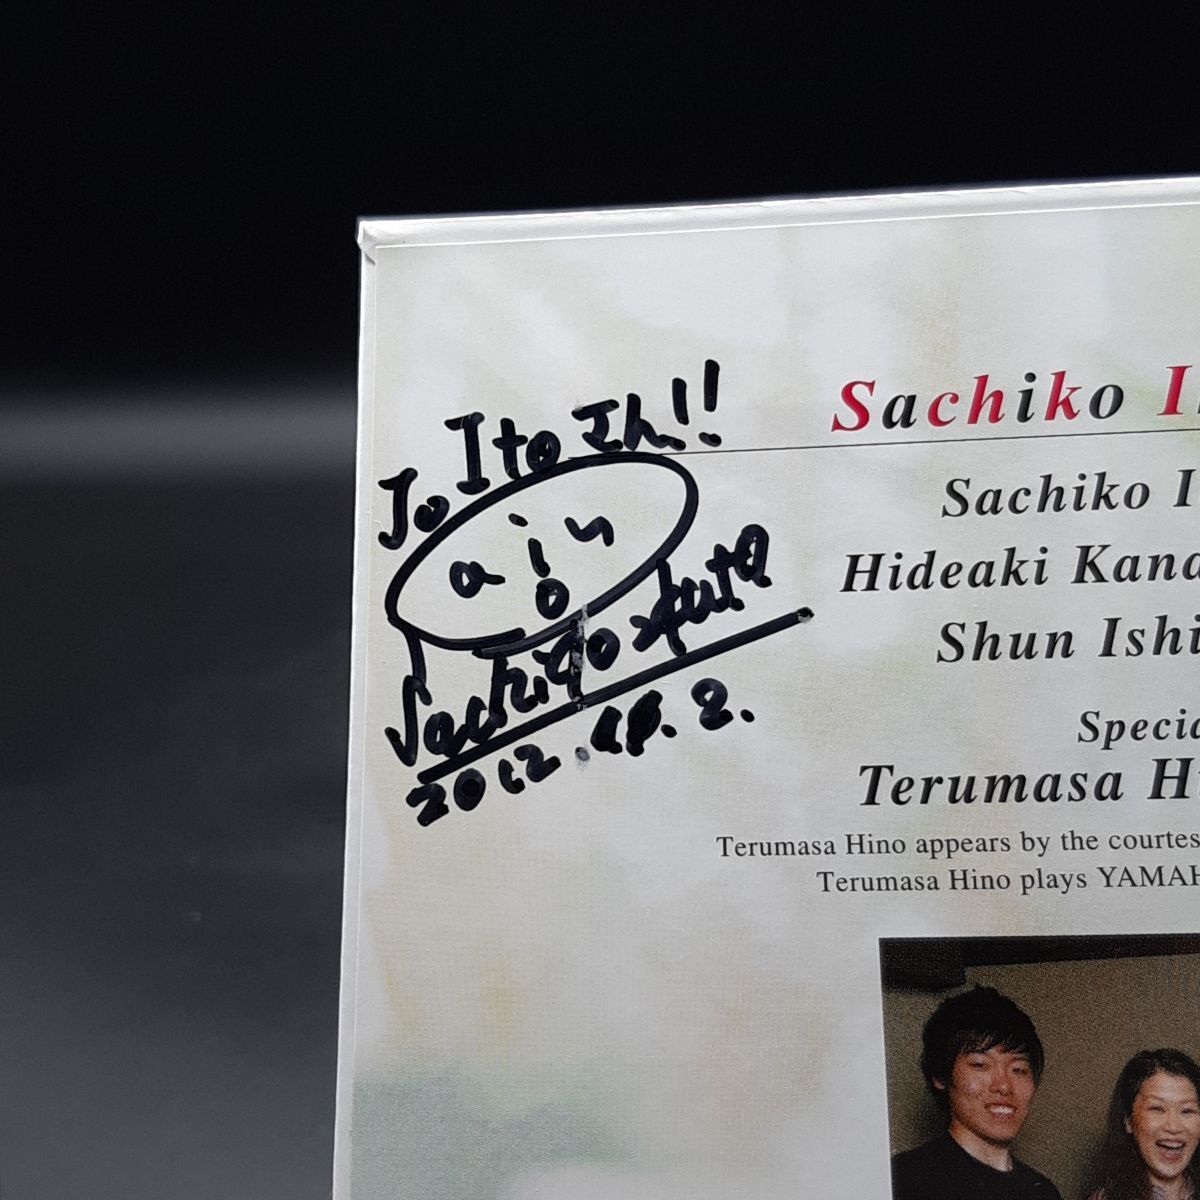 To Ito さん!!
Sachiko Ikuta
2012. 2.
Sachiko I
Sachiko I
Hideaki Kana
Shun Ishi
Specia
Terumasa H
Terumasa Hino appears by the courtes
Terumasa Hino plays YAMAH